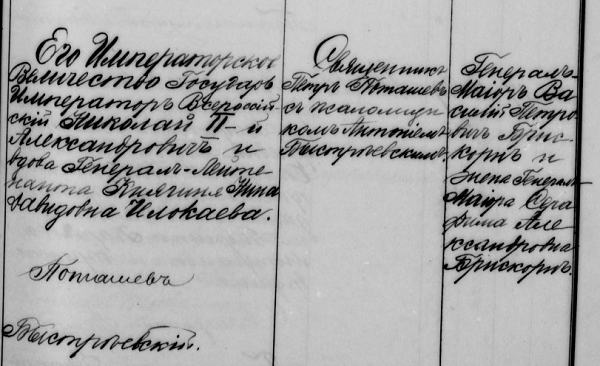 Его Императорское
Величество Государь
Императоръ Всероссій-
скій Николай II-й
Александровичъ и
вдова Генералъ-Лейте-
нанта Княгиня Нина
Давидовна
Священникъ
Петръ Поташевъ
съ псаломщи
комъ Антоніемъ
Быстріевскимъ.
Генералъ-
Маіоръ Ва
силій Петро
вичъ Брис-
корнъ и
жена Генералъ-
Маіора Сера
фима Але
ксандровна
Брискорнъ.
Поташевъ
Быстріевскій.